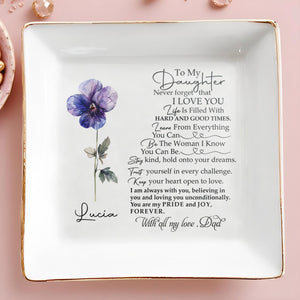 To My
Daughter
Never forget that
I LOVE YOU
Life Is Filled With
HARD AND GOOD TIMES.
Learn From Everything
You Can.
Be The Woman I Know
You Can Be.
Stay kind, hold onto your dreams.
Trust yourself in every challenge.
Keep your heart open to love.
I am always with you, believing in
you and loving you unconditionally.
You are my PRIDE and JOY,
FOREVER.
With all my love, Dad
Lucia